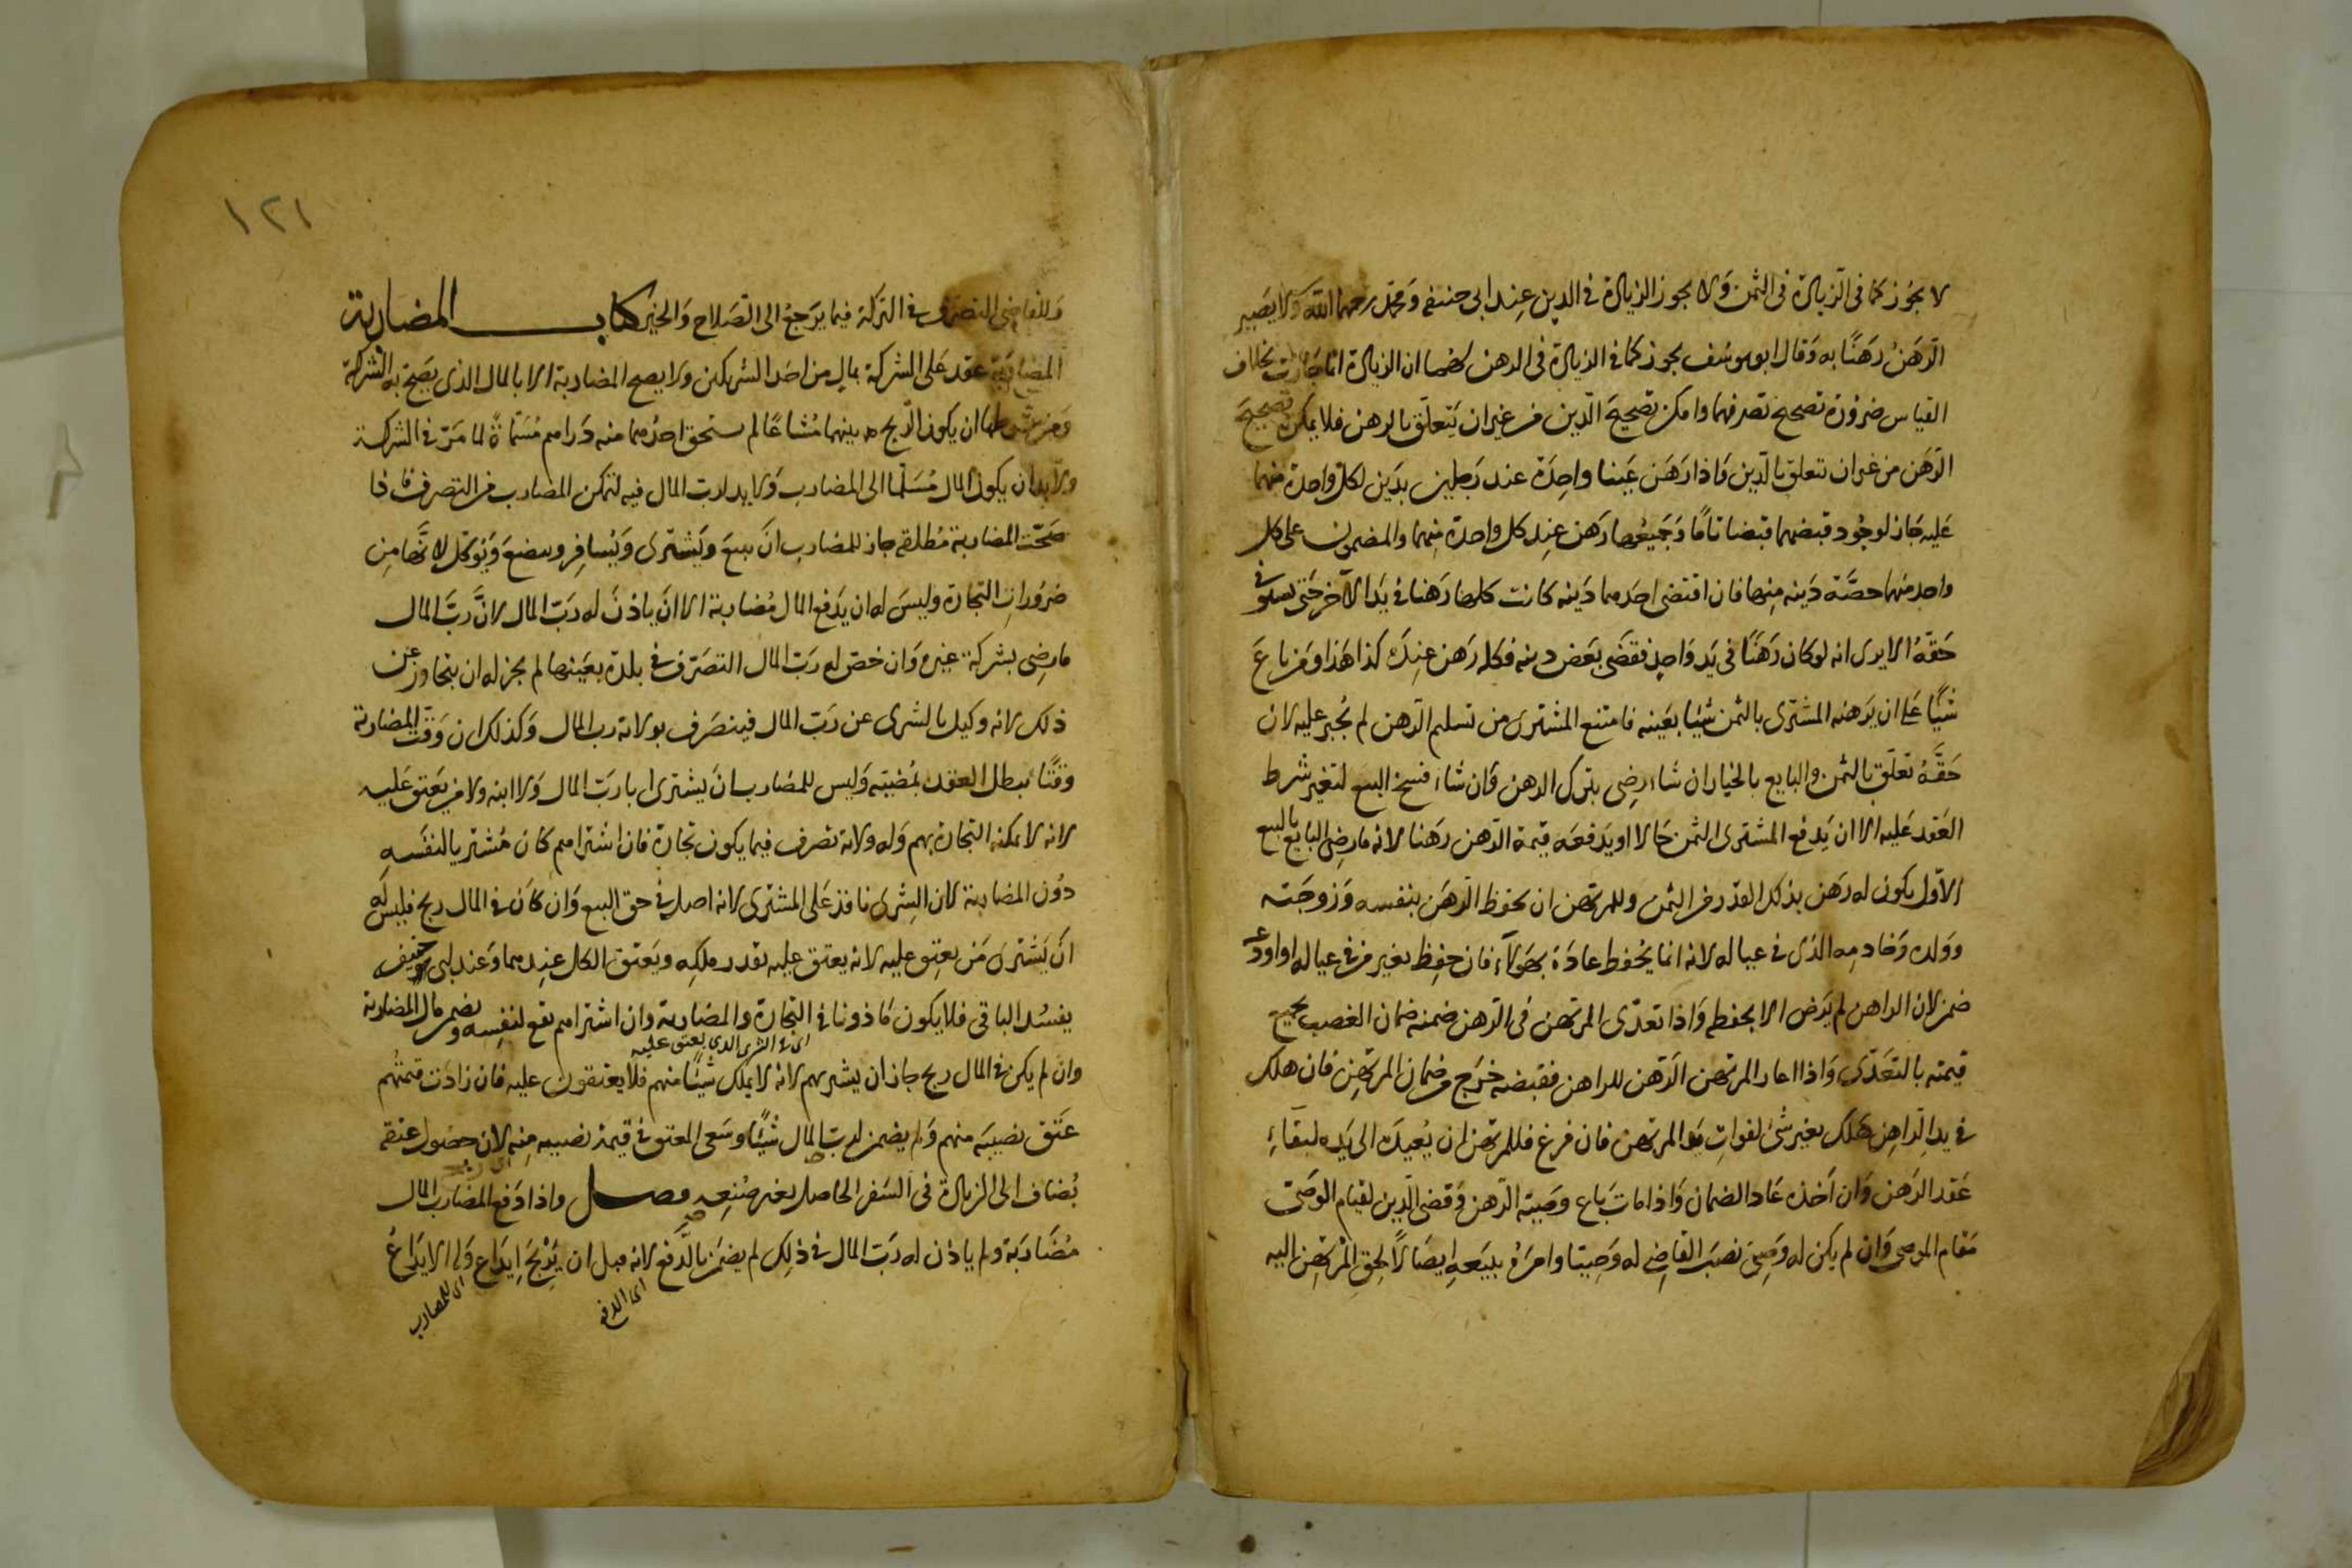 لا يجوز كما فى الزيادة فى الثمن ولا يجوز الزيادة فى الدين عند ابى حنيفه ومحمد رحمهما الله ولا يصير
الرهن رهنا به وقال ابو يوسف يجوز كما فى الزيادة فى الرهن لهما ان الزيادة انما جازت بخلاف
القياس ضرورة تصحيح تصرفهما وامكن تصحيح الدين من غير ان يتعلق بالرهن فلا يمكن تصحيح
الرهن من غير ان تتعلق بالدين واذا رهن عينا واحدة عند رجلين بدين لكل واحدة منهما
عليه جاز لوجود قبضهما قبضا تاما وجميعها رهن عند كل واحدة منهما والمضمون على كل
واحد منهما حصة دينه منها فان اقتضى احدهما دينه كانت كلها رهنا فى يد الاخر حتى يستوفى
حقه الا يرى انه لو كان رهنا فى يد واحد فقضى بعض دينه فكله رهن عنده كذا هذا ومن باع
شيئا على ان يرهنه المشترى بالثمن شيئا بعينه فامتنع المشترى من تسليم الرهن لم يجبر عليه لان
حقه تعلق بالثمن والبايع بالخيار ان شاء رضى بترك الرهن وان شاء فسخ البيع لتغير شرط
العقد عليه الا ان يدفع المشترى الثمن حالا او يدفعه قيمة الرهن رهنا لانه ما رضى البايع بالبيع
الاول يكون له رهن بذلك القدر من الثمن وللمرتهن ان يحفظ الرهن بنفسه وزوجته
وولده وخادمه الذى فى عياله لانه انما يحفظ عادة بهولاء فان حفظ بغير من فى عياله او اودع
ضمن لان الراهن لم يرض الا بحفظه واذا تعدى المرتهن فى الرهن ضمنه ضمان الغصب بجميع
قيمته بالتعدى واذا اعار المرتهن الرهن للراهن فقبضه خرج من ضمان المرتهن فان هلك
فى يد الراهن هلك بغير شئ لفوات يد المرتهن فان فرغ فللمرتهن ان يعيده الى يده لبقاء
عقد الرهن وان اخذه عاد الضمان واذا مات باع وصيه الرهن وقضى الدين لقيام الوصى
مقام الموصى وان لم يكن له وصى نصب القاضى له وصيا وامره ببيعه ايصالا لحق المرتهن اليه
١٢١
وللقاضى التصرف فى التركة فيما يرجع الى الصلاح والخير كتاب المضاربة
المضاربة عقد على الشركة بمال من احد الشريكين ولا يصح المضاربة الا بالمال الذى يصح به الشركة
ومن شرطها ان يكون الربح بينهما مشاعا لم يستحق احدهما منه دراهم مسماة لما مر فى الشركة
ولا بد ان يكون المال مسلما الى المضارب ولا يد لرب المال فيه لتمكن المضارب من التصرف فاذا
صحت المضاربة مطلقة جاز للمضارب ان يبيع ويشترى ويسافر ويبضع ويوكل لانها من
ضرورات التجارة وليس له ان يدفع المال مضاربة الا ان ياذن له رب المال لان رب المال
ما رضى بشركة غيره وان خص له رب المال التصرف فى بلدة بعينها لم يجز له ان يتجاوز عن
ذلك لانه وكيل بالشرى عن رب المال فيتصرف بولاية رب المال وكذلك ان وقت المضاربة
وقتا يبطل العقد بمضيه وليس للمضارب ان يشترى ابا رب المال ولا ابنه ولا من يعتق عليه
لانه لا يمكنه التجارة بهم وله ولاية تصرف فيما يكون تجارة فان اشتراهم كان مشتريا لنفسه
دون المضاربة لان الشرى نافذ على المشترى لانه اصل فى حق البيع وان كان فى المال ربح فليس له
ان يشترى من يعتق عليه لانه يعتق عليه بقدر ملكه ويعتق الكل عندهما وعند ابى حنيفه
يفسد الباقى فلا يكون ماذونا فى التجارة والمضاربة وان اشتراهم يقع لنفسه ويضمن مال المضاربة
اى فى الشرى الذى يعتق عليه
وان لم يكن فى المال ربح جاز ان يشتريهم لانه لا يملك شيئا منهم فلا يعتقون عليه فان زادت قيمتهم
عتق نصيبه منهم ولم يضمن لرب المال شيئا وسعى المعتق فى قيمة نصيبه منه لان حصول عتقه
يضاف الى الزيادة فى السعر الحاصل بغير صنعه فصل واذا دفع المضارب المال
مضاربة ولم ياذن له رب المال فى ذلك لم يضمن بالدفع لانه قبل ان يربح ايداع وله الايداع
اى الدفع
اى للمضارب